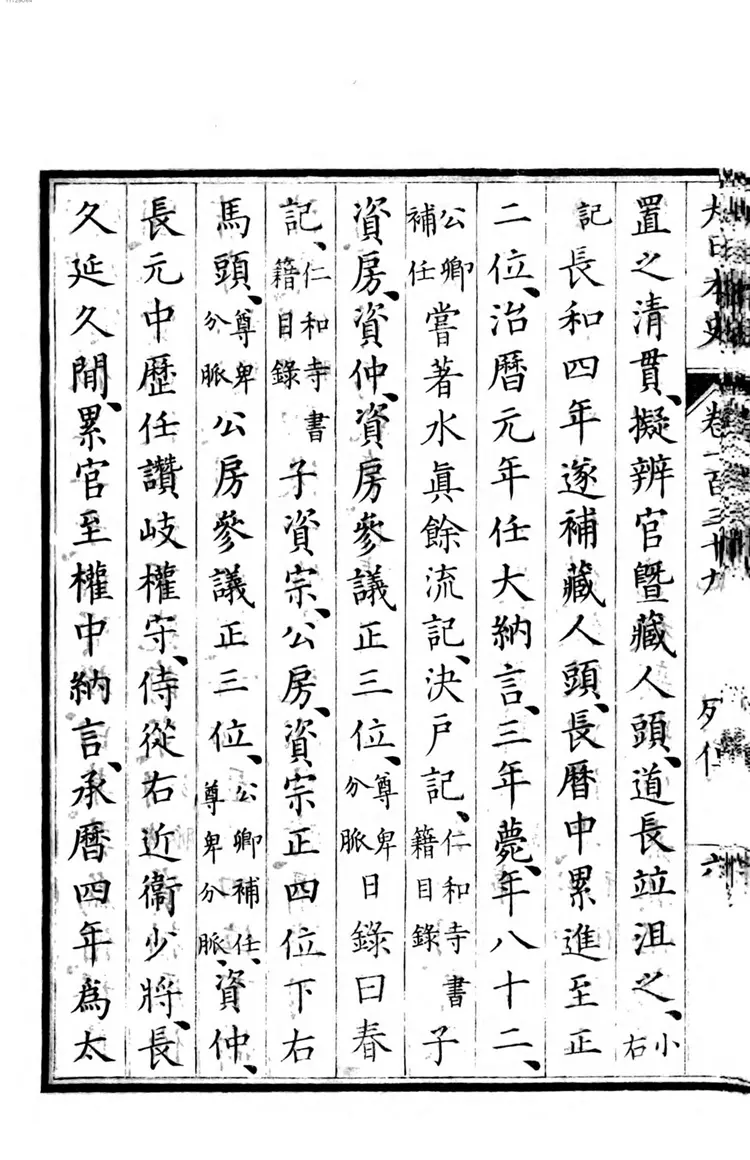 大日本史 卷一百三十九 列傳 六
置之清貫、擬辨官曁藏人頭、道長竝沮之、小右
記長和四年遂補藏人頭、長曆中累進至正
二位、治曆元年任大納言、三年薨、年八十二、
公卿補任嘗著水眞餘流記、決戸記、仁和寺書籍目錄子
資房、資仲、資房參議正三位、尊卑分脈日錄曰春
記、仁和寺書籍目錄子資宗、公房、資宗正四位下右
馬頭、尊卑分脈公房參議正三位、公卿補任、尊卑分脈、資仲、
長元中歷任讚岐權守、侍從右近衞少將、長
久延久間、累官至權中納言、承曆四年爲太